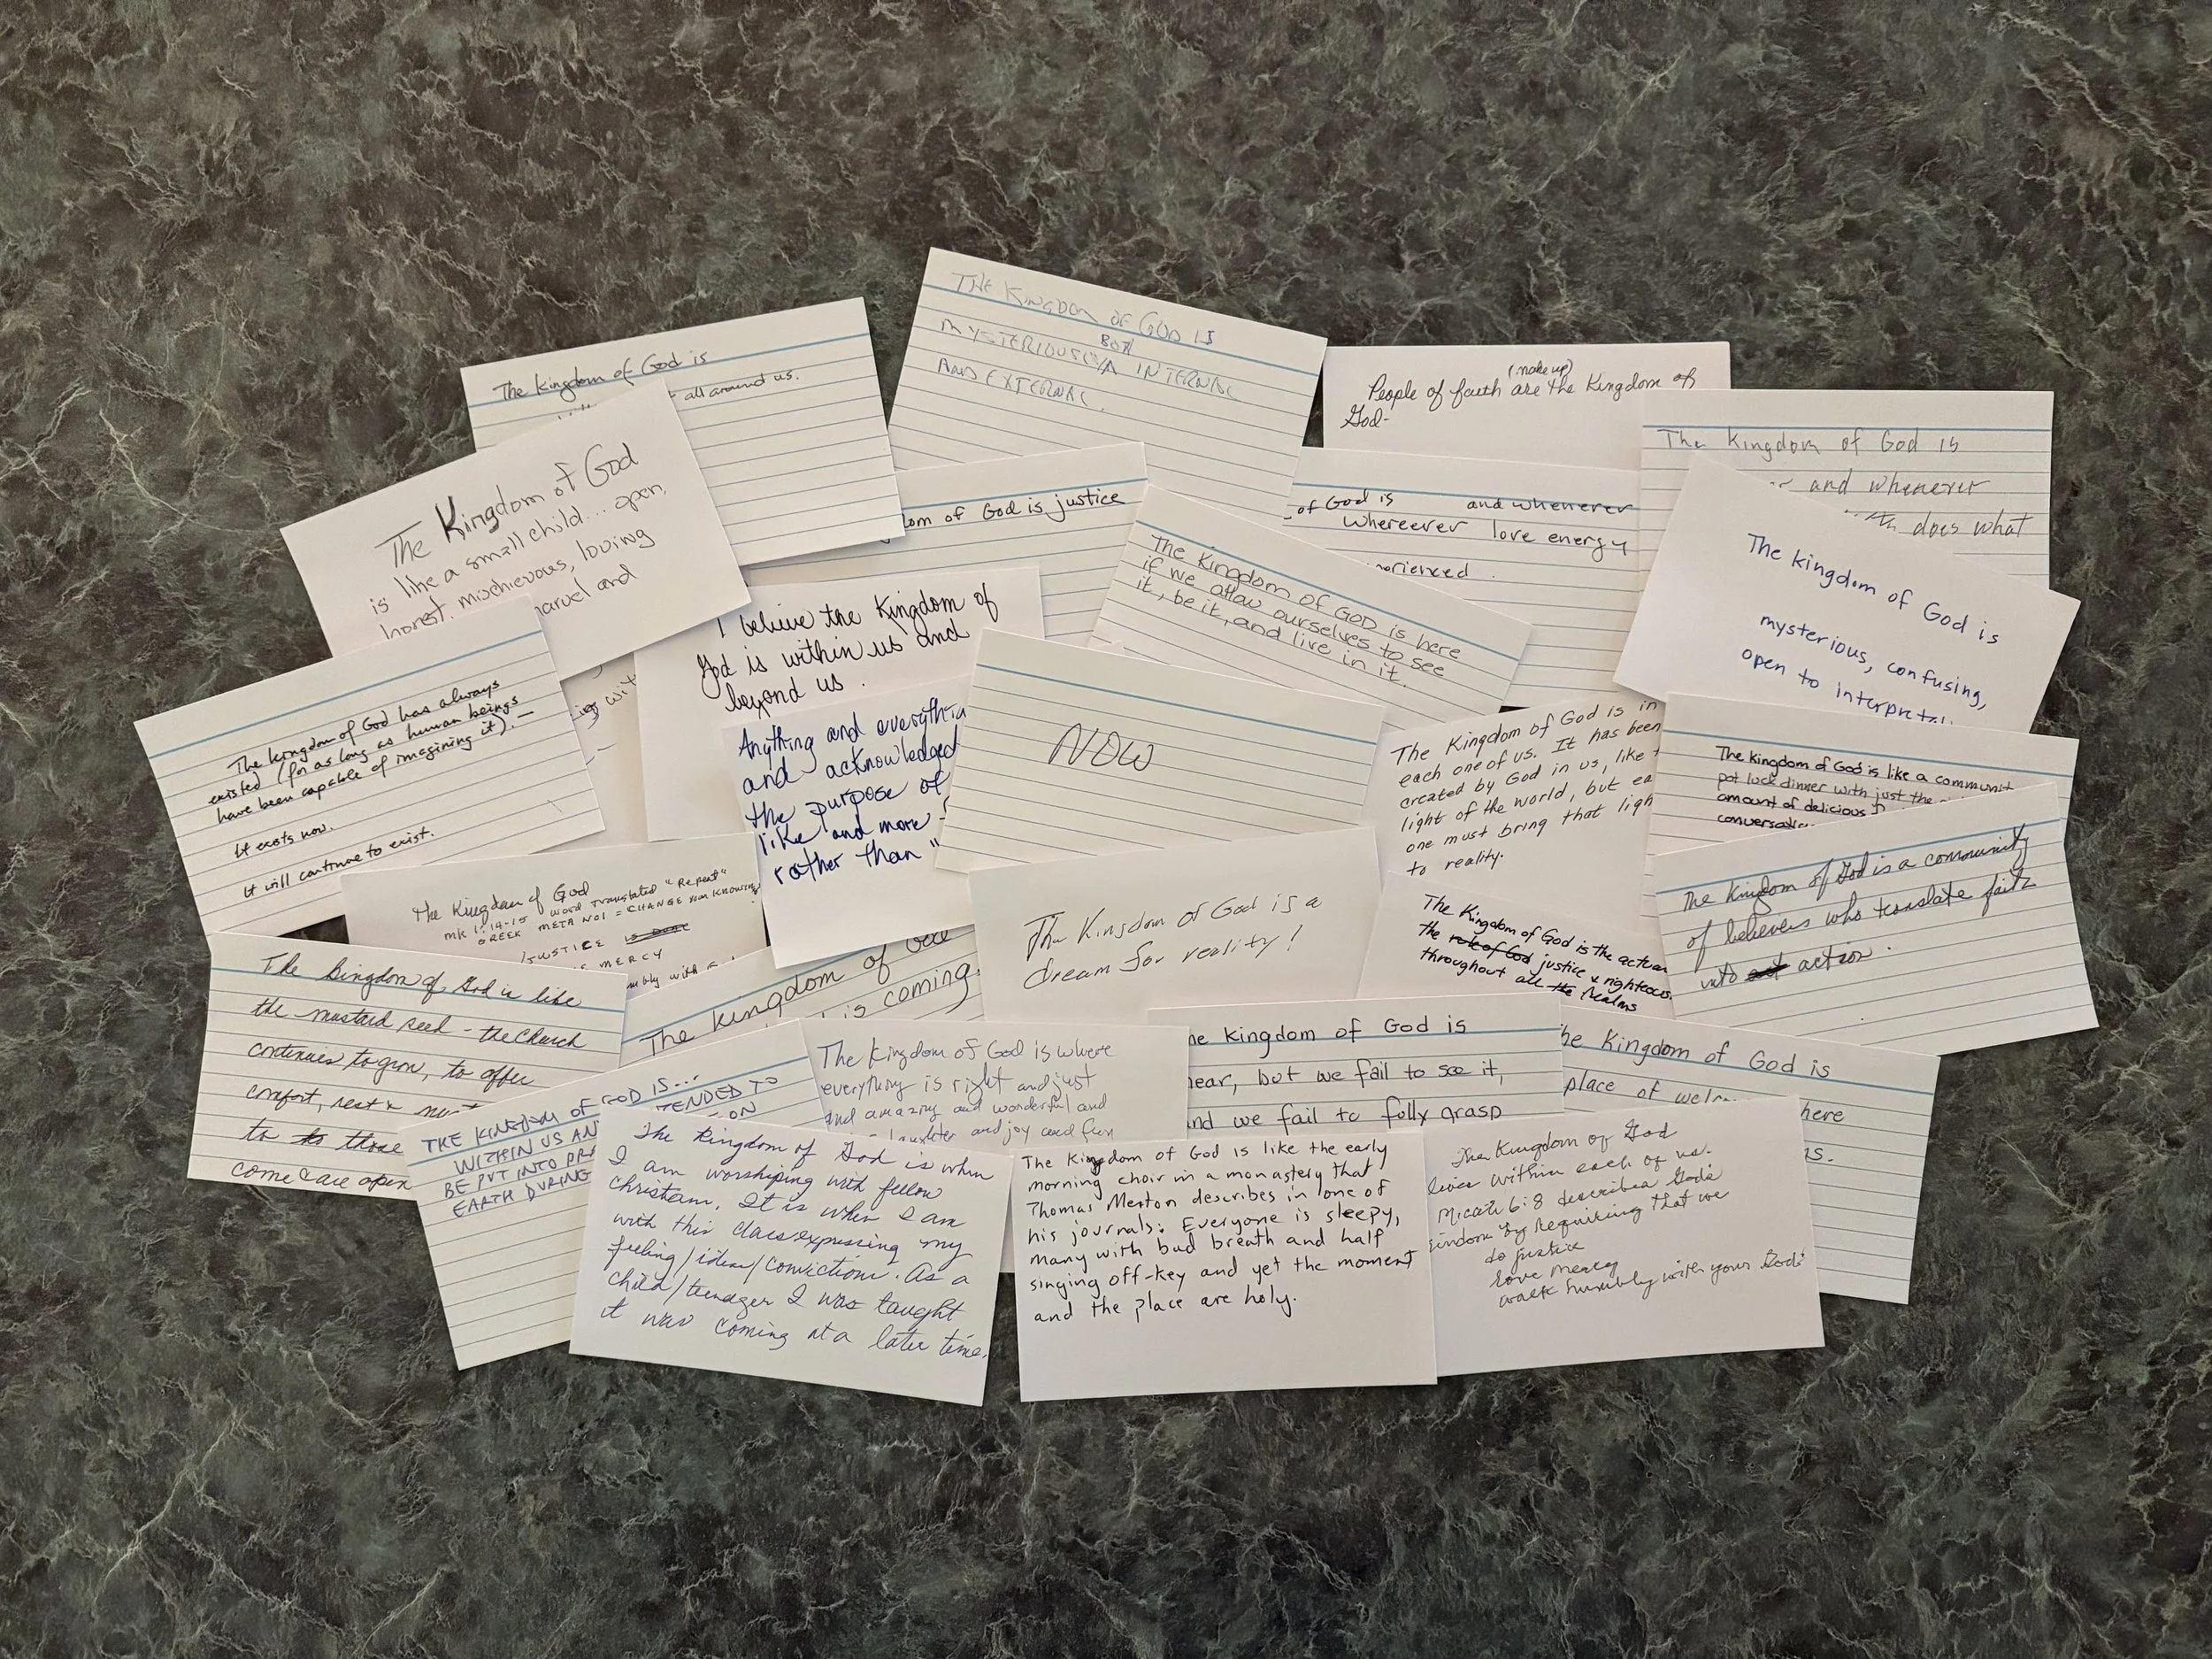 The Kingdom of God is
all around us.
THE KINGDOM OF GOD IS
BOTH
MYSTERIOUSLY^ INTERNAL
AND EXTERNAL.
(make up)
People of faith are the Kingdom of
God-
The Kingdom of God is
and whenever
does what
The Kingdom of God
is like a small child... open,
honest, mischievous, loving
marvel and
dom of God is justice
of God is and whenever
whereever love energy
perienced.
The Kingdom of GOD is here
if we allow ourselves to see
it, be it, and live in it.
The kingdom of God is
mysterious, confusing,
open to
I believe the Kingdom of
God is within us and
beyond us.
The kingdom of God has always
existed (for as long as human beings
have been capable of imagining it). —
It exists now.
It will continue to exist.
Anything and everythin
and acknowledged
the purpose of
like and more
rather than "
NOW
The Kingdom of God is in
each one of us. It has been
created by God in us, like
light of the world, but ea
one must bring that ligh
to reality.
The Kingdom of God is like a communit
pot luck dinner with just the
amount of delicious f
conversatio
The Kingdom of God
mk 1:14-15 word translated "Repent"
GREEK META NOI = CHANGE
JUSTICE is done
MERCY
mbly with
The Kingdom of God is a
dream for reality!
The Kingdom of God is the actua
the rule of God justice & righteous
throughout all the Realms
The Kingdom of God is a community
of believers who translate faith
into action.
The Kingdom of God is like
the mustard seed - the Church
continues to grow, to offer
comfort, rest &
to to those
come & are open
The Kingdom of God
is coming.
THE KINGDOM OF GOD IS...
WITHIN US AN TENDED TO
BE PUT INTO PRA ON
EARTH DURING
The Kingdom of God is where
everything is right and just
and amazing and wonderful and
laughter and joy and fun
he kingdom of God is
near, but we fail to see it,
and we fail to fully grasp
he Kingdom of God is
place of welco here
us.
The Kingdom of God is when
I am worshiping with fellow
Christians. It is when I am
with this class expressing my
feeling/ideas/convictions. As a
child/teenager I was taught
it was coming at a later time.
The Kingdom of God is like the early
morning choir in a monastery that
Thomas Merton describes in one of
his journals: Everyone is sleepy,
many with bad breath and half
singing off-key and yet the moment
and the place are holy.
The Kingdom of God
lives within each of us.
Micah 6:8 describes God's
kindom by requiring that we
do justice
love mercy
walk humbly with your God.